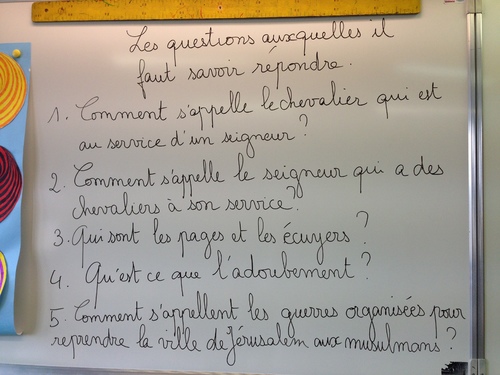 Les questions auxquelles il
faut savoir répondre.
1. Comment s'appelle le chevalier qui est
au service d'un seigneur ?
2. Comment s'appelle le seigneur qui a des
chevaliers à son service ?
3. Qui sont les pages et les écuyers ?
4. Qu'est ce que l'adoubement ?
5. Comment s'appellent les guerres organisées pour
reprendre la ville de Jérusalem aux musulmans ?